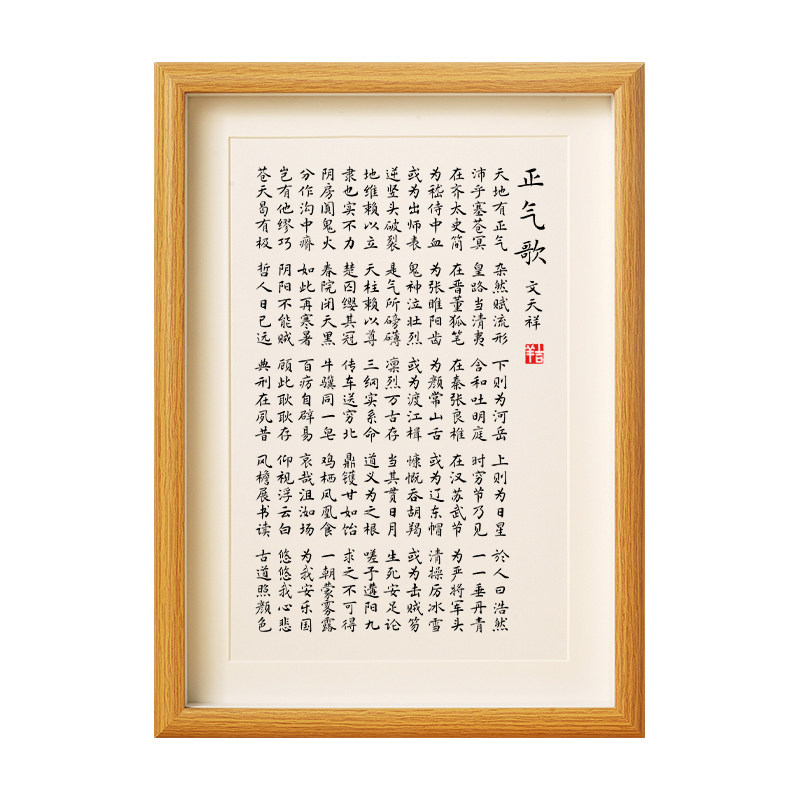 正气歌 文天祥
天地有正气 杂然赋流形 下则为河岳 上则为日星 於人曰浩然
沛乎塞苍冥 皇路当清夷 含和吐明庭 时穷节乃见 一一垂丹青
在齐太史简 在晋董狐笔 在秦张良椎 在汉苏武节 为严将军头
为嵇侍中血 为张睢阳齿 为颜常山舌 或为辽东帽 清操厉冰雪
或为出师表 鬼神泣壮烈 或为渡江楫 慷慨吞胡羯 或为击贼笏
逆竖头破裂 是气所磅礴 凛烈万古存 当其贯日月 生死安足论
地维赖以立 天柱赖以尊 三纲实系命 道义为之根 嗟予遘阳九
隶也实不力 楚囚缨其冠 传车送穷北 鼎镬甘如饴 求之不可得
阴房阗鬼火 春院闭天黑 牛骥同一皂 鸡栖凤凰食 一朝蒙雾露
分作沟中瘠 如此再寒暑 百疠自辟易 哀哉沮洳场 为我安乐国
岂有他缪巧 阴阳不能贼 顾此耿耿存 仰视浮云白 悠悠我心悲
苍天曷有极 哲人日已远 典刑在夙昔 风檐展书读 古道照颜色